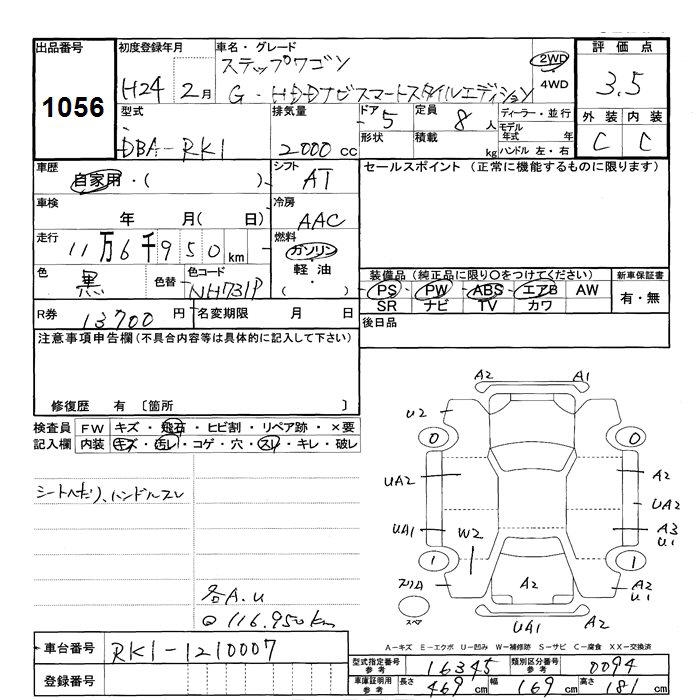 出品番号
1056
初度登録年月
H24 2月
車名・グレード
ステップワゴン
G・HDDナビスマートスタイルエディション
2WD
4WD
評価点
3.5
外装 内装
C C
型式
DBA-RK1
排気量
2000cc
ドア 5
形状
定員 8人
積載 kg
ディーラー・並行
モデル年式 年
ハンドル 左・右
車歴
自家用・( )
シフト
AT
セールスポイント (正常に機能するものに限ります)
車検
年 月( 日)
冷房
AAC
走行
11万6千950km
燃料
ガソリン
軽油
( )
色
黒
色替
色コード
NH731P
装備品 (純正品に限り○をつけてください)
PS PW ABS エアB AW
SR ナビ TV カワ
新車保証書
有・無
R券 13700円
名変期限 月 日
後日品
注意事項申告欄 (不具合内容等は具体的に記入して下さい)
修復歴 有 〔箇所 〕
検査員記入欄
FW キズ・飛石・ヒビ割・リペア跡・×要
内装 キズ・汚レ・コゲ・穴・スレ・キレ・破レ
シートヘタリ、ハンドルスレ
各A.U
116.950km
A2 A1
U2
0 0
UA2 A2
UA2
UA1 W2 A3
U1
1 1
A2
A2
U1
スペア
UA1 A2
A-キズ E-エクボ U-凹み W-補修跡 S-サビ C-腐食 XX-交換済
車台番号 RK1-1210007
登録番号
型式指定番号 参考 16345
類別区分番号 参考 0094
車庫証明用 参考 長さ 469cm 幅 169cm 高さ 181cm